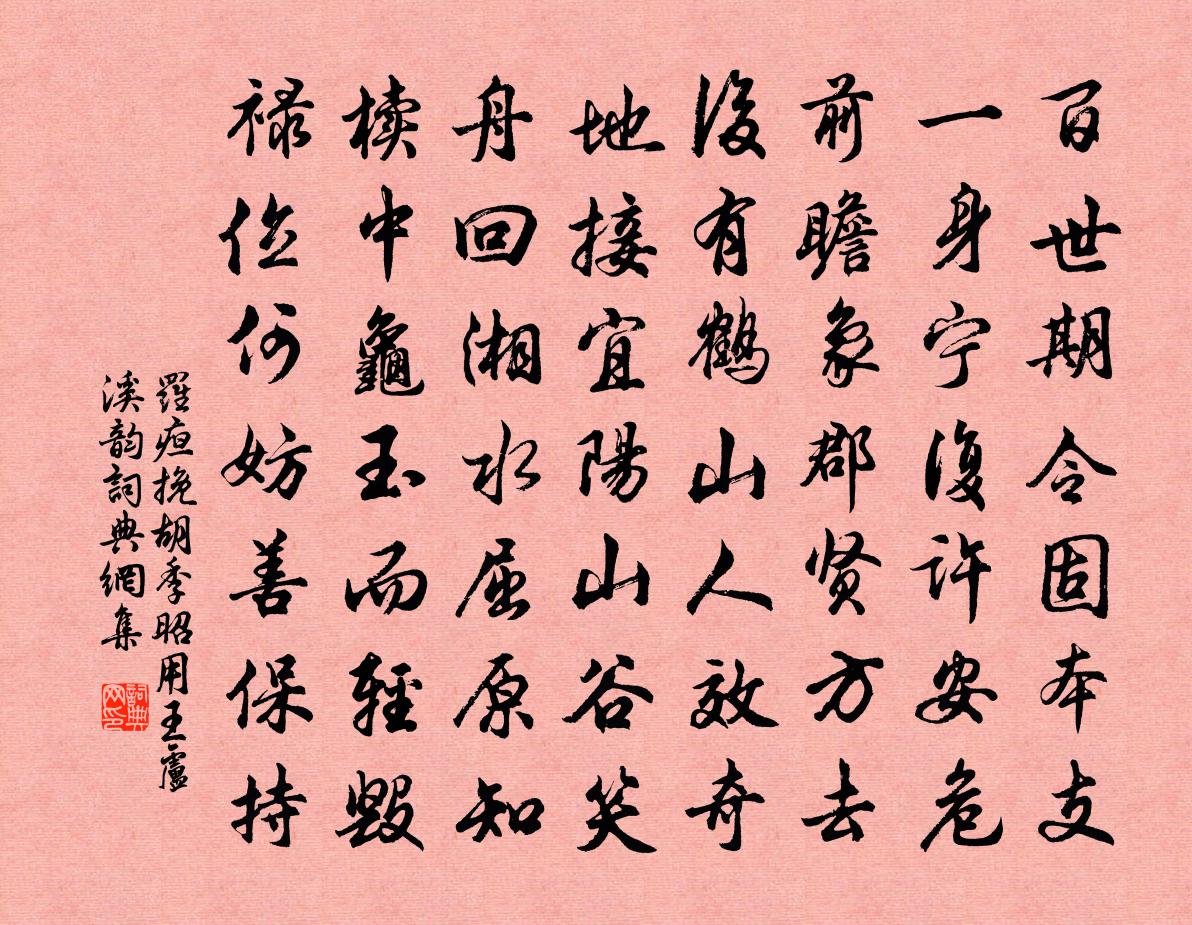 百世期令固本支
一身宁復許安危
前瞻象郡贤方去
後有鶴山人效奇
地接宜陽山谷笑
舟回湘水屈原知
櫝中龜玉而輕毀
禄位何妨善保持
羅疸挽胡季昭用王盧
溪韵詞典網集
詞典网印